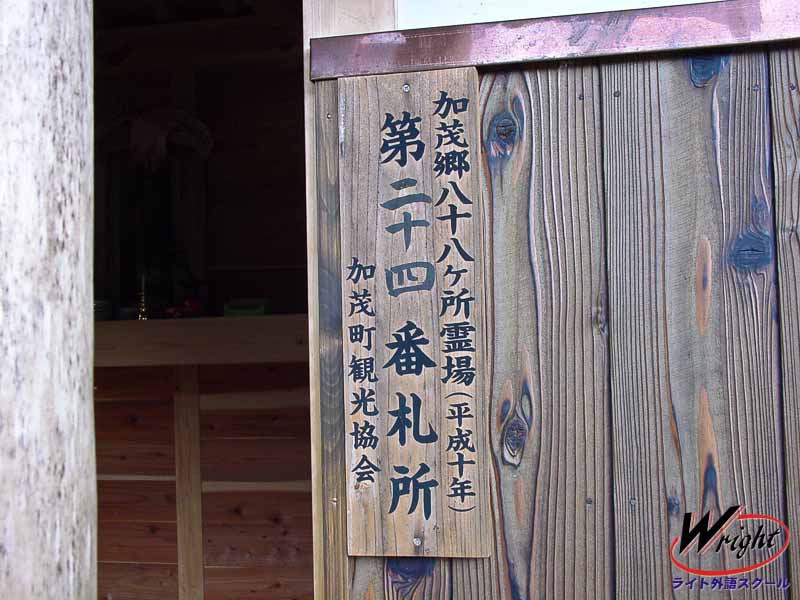 加茂郷八十八ヶ所霊場（平成十年）
第二十四番札所
加茂町観光協会
Wright
ライト外語スクール